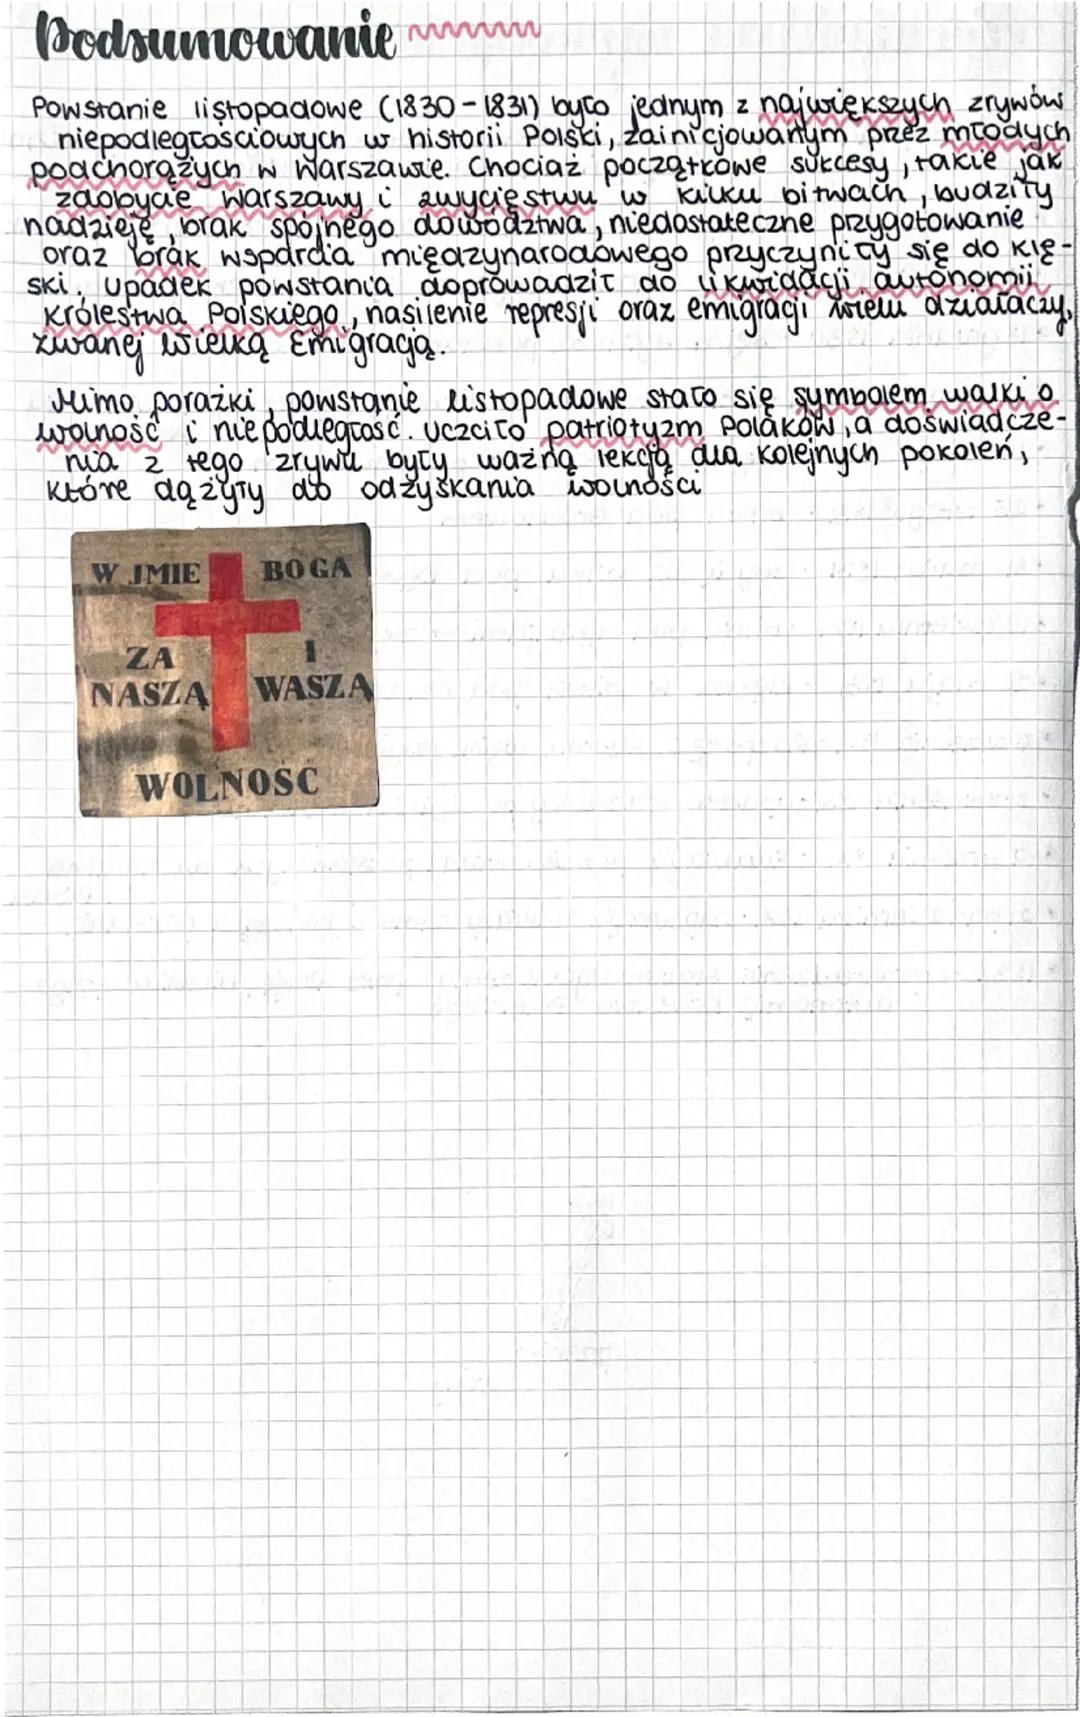 Podsumowanie
Powstanie listopadowe (1830-1831) było jednym z największych zrywów
niepodległościowych w historii Polski, zainicjowanym przez młodych
podchorążych w Warszawie. Chociaż początkowe sukcesy, takie jak
zdobycie Warszawy i zwycięstwu w kilku bitwach, budziły
nadzieję, brak spójnego dowództwa, niedostateczne przygotowanie
oraz brak wsparcia międzynarodowego przyczyniły się do klę-
ski. Upadek powstania doprowadził do likwidacji autonomii
Królestwa Polskiego, nasilenie represji oraz emigracji wielu działaczy,
zwanej Wielką Emigracją.
Mimo porażki, powstanie listopadowe stało się symbolem walki o
wolność i niepodległość. Uczciło patriotyzm Polaków, a doświadcze-
nia z tego zrywu były ważną lekcją dla kolejnych pokoleń,
które dążyły do odzyskania wolności
W JMIE BOGA
ZA I
NASZĄ WASZĄ
WOLNOŚĆ